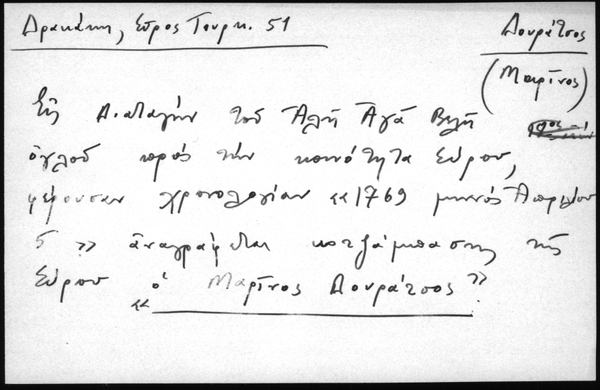 Δρακάκη, Σύρος Τουρκ. 51
Δουράτσος
(Μαρῖνος)
Εἰς Διαταγήν τοῦ Ἀλῆ Ἀγᾶ Βελῆ
ὀγλοῦ πρός τήν κοινότητα Σύρου,
φέρουσαν χρονολογίαν «1769 μηνός Ἀπριλίου
5» ἀναγράφεται κοτζάμπασης τῆς
Σύρου «ὁ Μαρῖνος Δουράτσος»